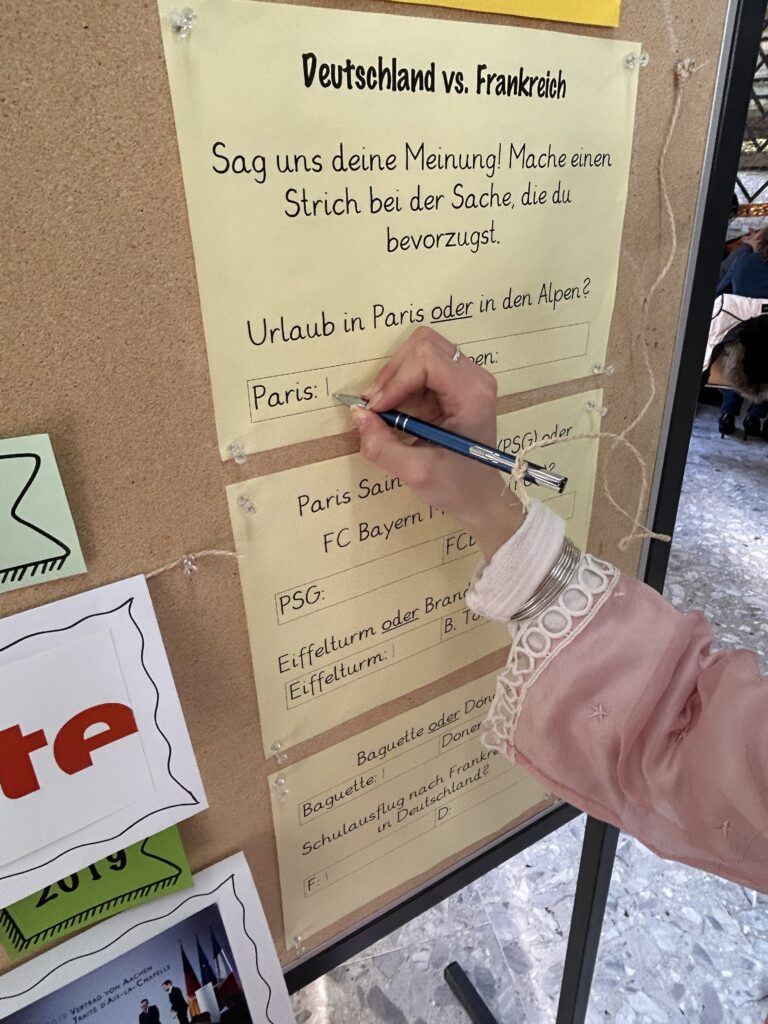 Deutschland vs. Frankreich
Sag uns deine Meinung! Mache einen
Strich bei der Sache, die du
bevorzugst.
Urlaub in Paris oder in den Alpen?
Paris:
(PSG) oder
Paris
FC Bayern
PSG:
Eiffelturm oder
Eiffelturm:
B.
Baguette oder
Baguette:
Schulausflug nach
in Deutschland?
F:
D:
te
2019
VERTRAG VON AACHEN
TRAITÉ D'AIX-LA-CHAPELLE